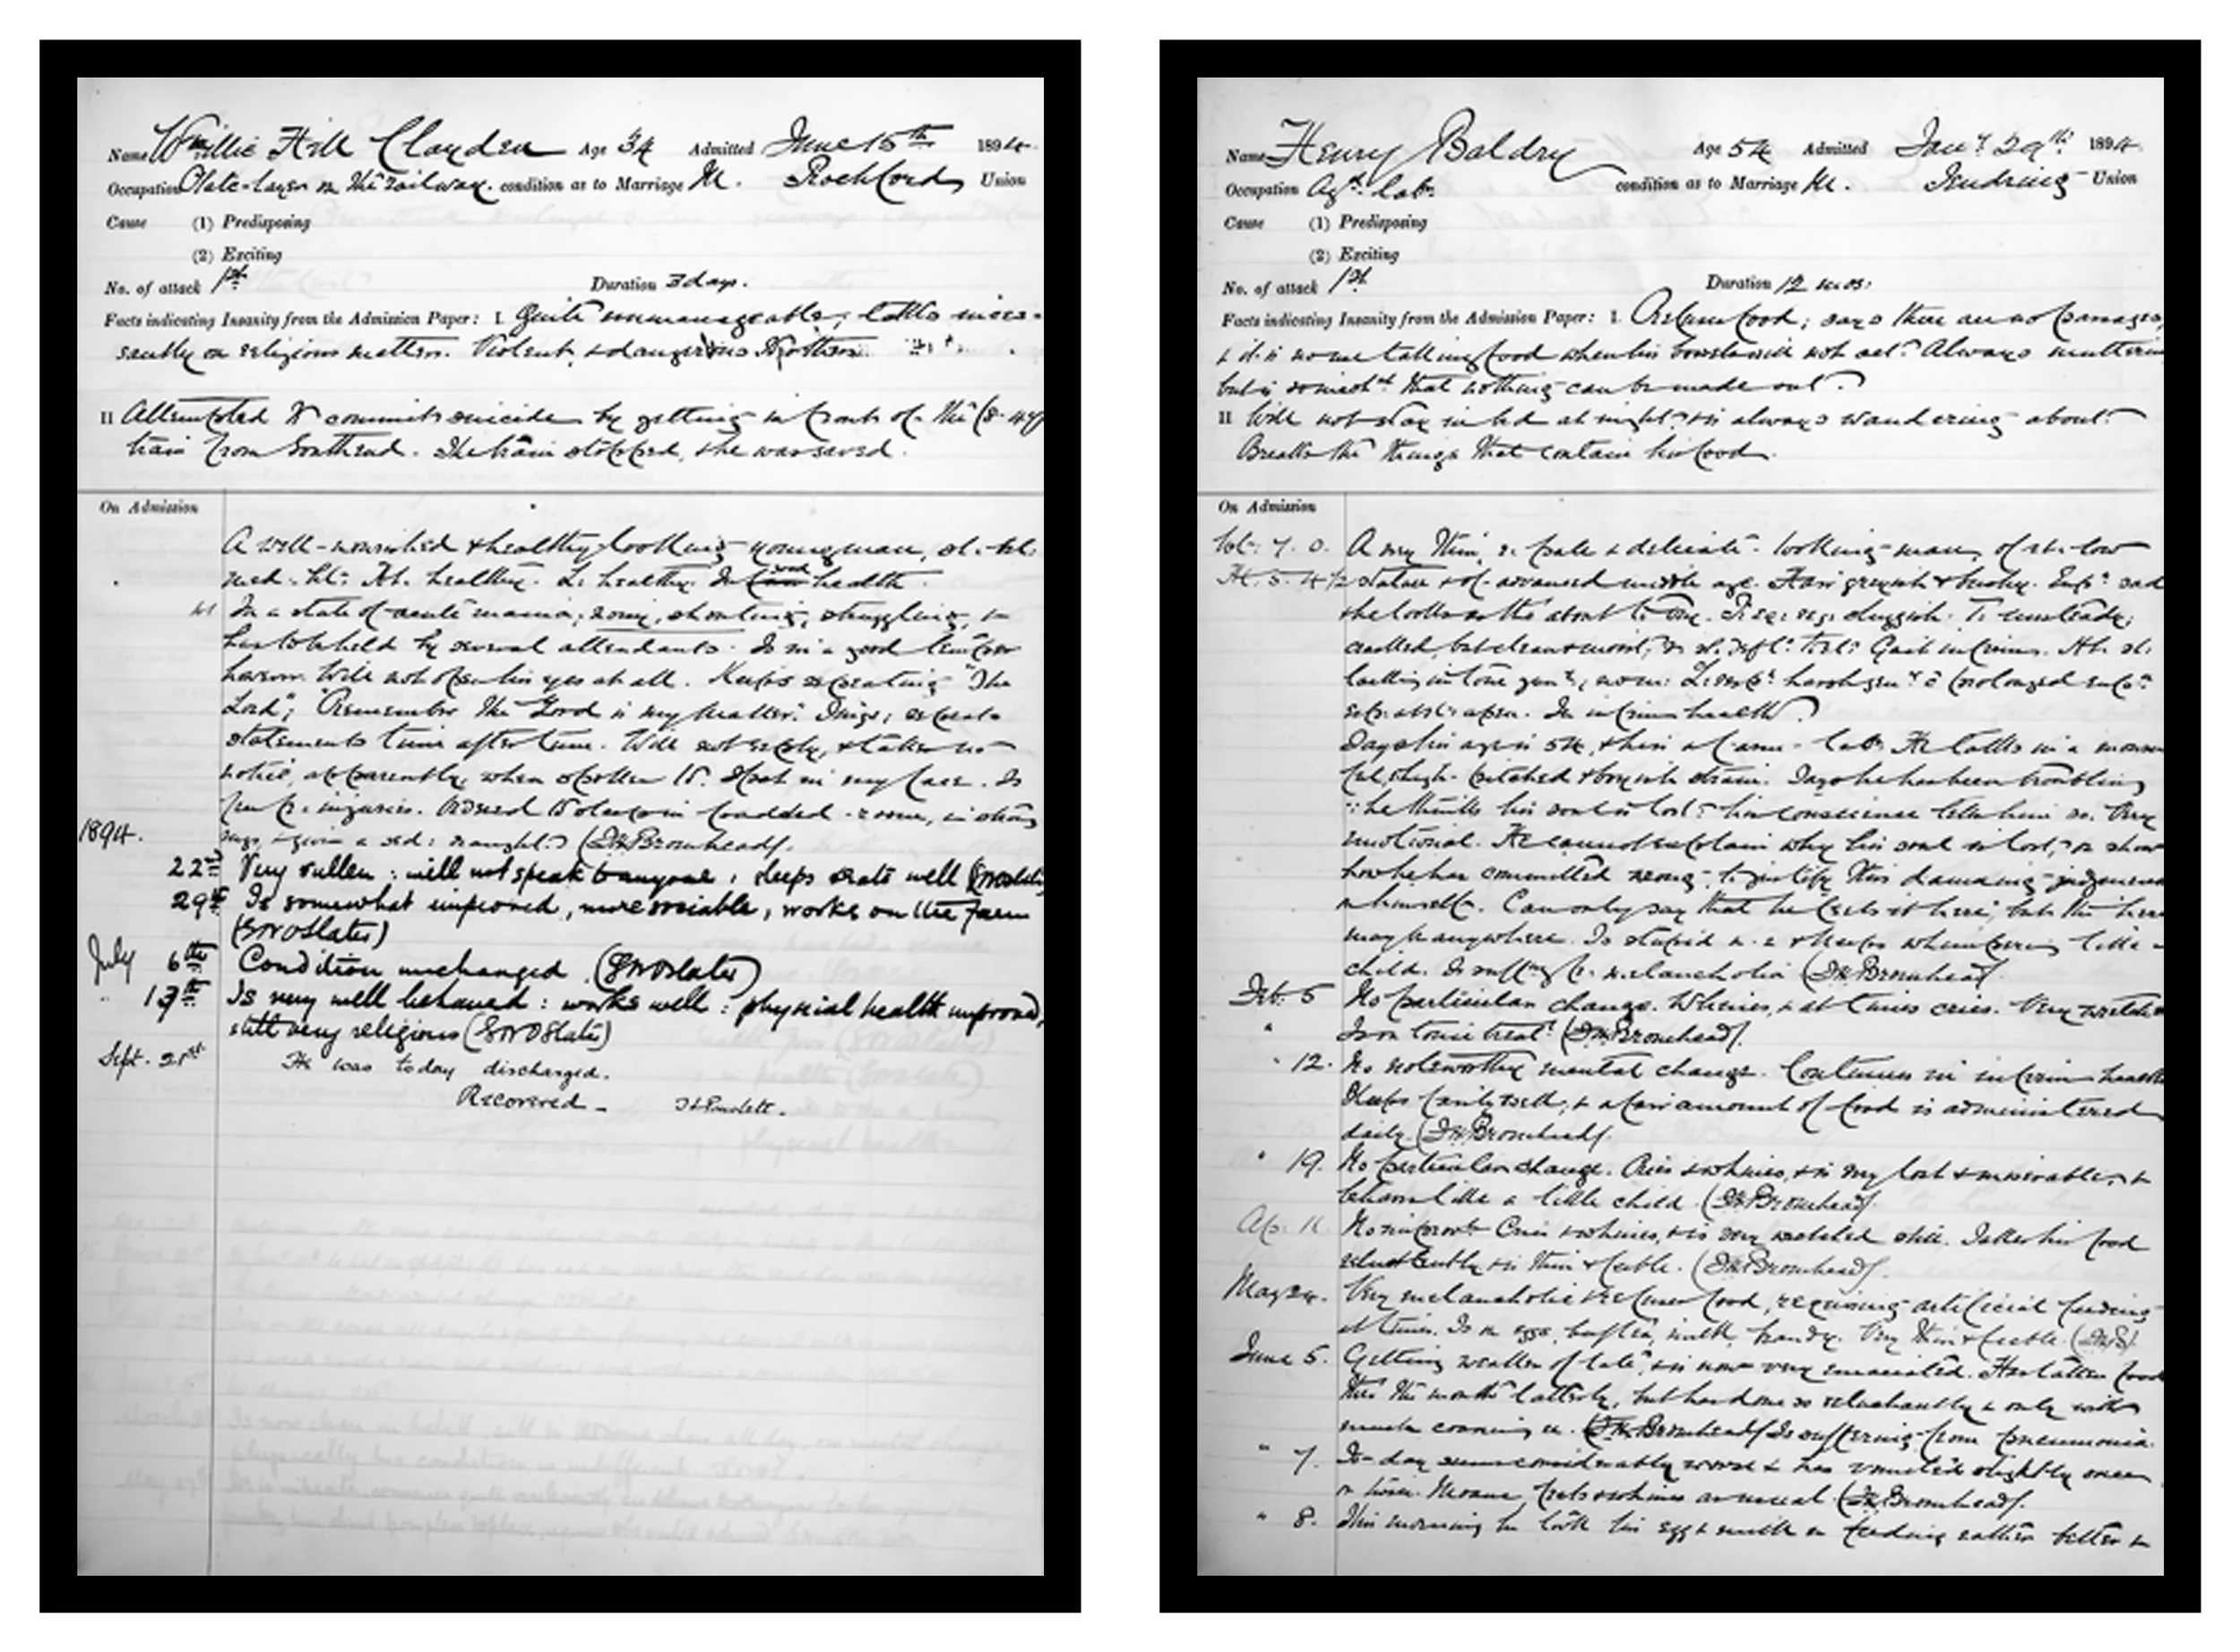 Name Willie Hill Clayden Age 34 Admitted June 15th 1894
Occupation Plate-layer on the railway. condition as to Marriage M. Rochford Union
Cause (1) Predisposing
(2) Exciting
No. of attack 1st Duration 3 days.
Facts indicating Insanity from the Admission Paper: I. Quite unmanageable, talks inces-
santly on religious matters. Violent & dangerous
II Attempted to commit suicide by getting in front of the 8.47
train from Southend. The train stopped, & he was saved.
On Admission
A well-nourished & healthy looking young man, of
med. ht. Ht. healthy. L. healthy. In good health.
In a state of acute mania, noisy, shouting, struggling, &
has to be held by several attendants. Is in a good temper
however. Will not open his eyes at all. Keeps repeating "The
Lord"; "Remember the Lord is my Master". Sings; repeats
statements time after time. Will not reply, & takes no
notice, apparently, when spoken to. Spat in my face. Is
free fr. injuries. Ordered to sleep in padded-room, in strong
rugs, & given a sed: draught. (F.H. Bromhead).
1894.
22nd Very sullen: will not speak to anyone; sleeps & eats well
29th Is somewhat improved, more sociable, works on the farm
(Slater)
July 6th Condition unchanged. (Slater)
" 13th Is very well behaved: works well: physical health improved,
still very religious (Slater)
Sept. 21st He was today discharged.
Recovered
Name Henry Baldry Age 54 Admitted Jany. 29th 1894
Occupation Agl. lab. condition as to Marriage M. Tendring Union
Cause (1) Predisposing
(2) Exciting
No. of attack 1st Duration 12 mos.
Facts indicating Insanity from the Admission Paper: I. Refuses food; says there are no passages,
& it is no use taking food when his bowels will not act. Always muttering
but is so that nothing can be made out.
II Will not stay in bed at night & is always wandering about.
Breaks the things that contain his food.
On Admission
Wt: 7. 0. A very thin, pale & delicate-looking man, of low
Ht. 5. 4½ stature & of advanced middle age. Hair greyish & bushy. Expn. sad
& he looks as tho about to cry. sluggish. T. unsteady,
cracked, but clean & moist, Gait infirm.
harsh prolonged
In infirm health.
Says his age is 54, & he is a farm-lab. He talks in a mourn-
ful, high-pitched & boyish strain. Says he has been troubling
∵ he thinks his soul is lost: his conscience tells him so. Very
emotional. He cannot explain why his soul is lost, or show
how he has committed wrong to justify this damning judgement
on himself. Can only say that he feels it here, but the here
may be anywhere. Is stupid & keeps whimpering like a
child. Is suffg. fr. melancholia (F.H. Bromhead).
Feb. 5 No particular change. Whines, & at times cries. Very wretched
" Is on tonic treat. (F.H. Bromhead).
" 12. No noteworthy mental change. Continues in infirm health
Sleeps fairly well, & a fair amount of food is administered
daily. (F.H. Bromhead).
" 19. No particular change. Cries & whines, & is very lost & miserable, &
behaves like a little child. (F.H. Bromhead).
Ap. 11. No improvt. Cries & whines, & is very wretched still. Takes his food
reluctantly & is thin & feeble. (F.H. Bromhead).
May 24. Very melancholic & refuses food, requiring artificial feeding
at times. Is on eggs, beef tea, milk, brandy. Very thin & feeble.
June 5. Getting weaker of late, & is now very emaciated. Has taken food
thro the mouth latterly, but has done so reluctantly & only with
much coaxing (F.H. Bromhead) Is suffering from pneumonia.
" 7. To-day seems considerably worse & has vomited slightly once
or twice. Moans, frets & whines as usual. (F.H. Bromhead).
" 8. This morning he took his egg & milk feeding rather better &